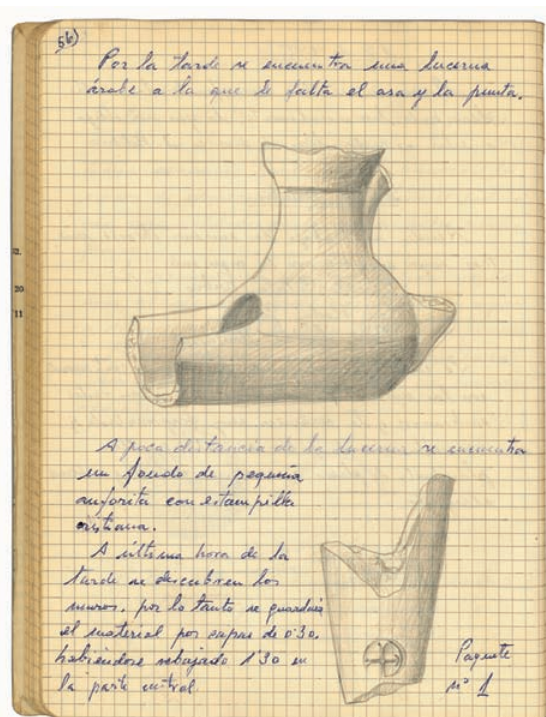 56)
Por la tarde se encuentra una lucerna
árabe a la que le falta el asa y la punta.
A poca distancia de la lucerna se encuentra
un fondo de pequeña
anforita con estampilla
cristiana.
A última hora de la
tarde se descubren los
muros, por lo tanto se guardará
el material por capas de 0'30,
habiéndose rebajado 1'30 en
la parte central.
Paquete
nº 1
20
11